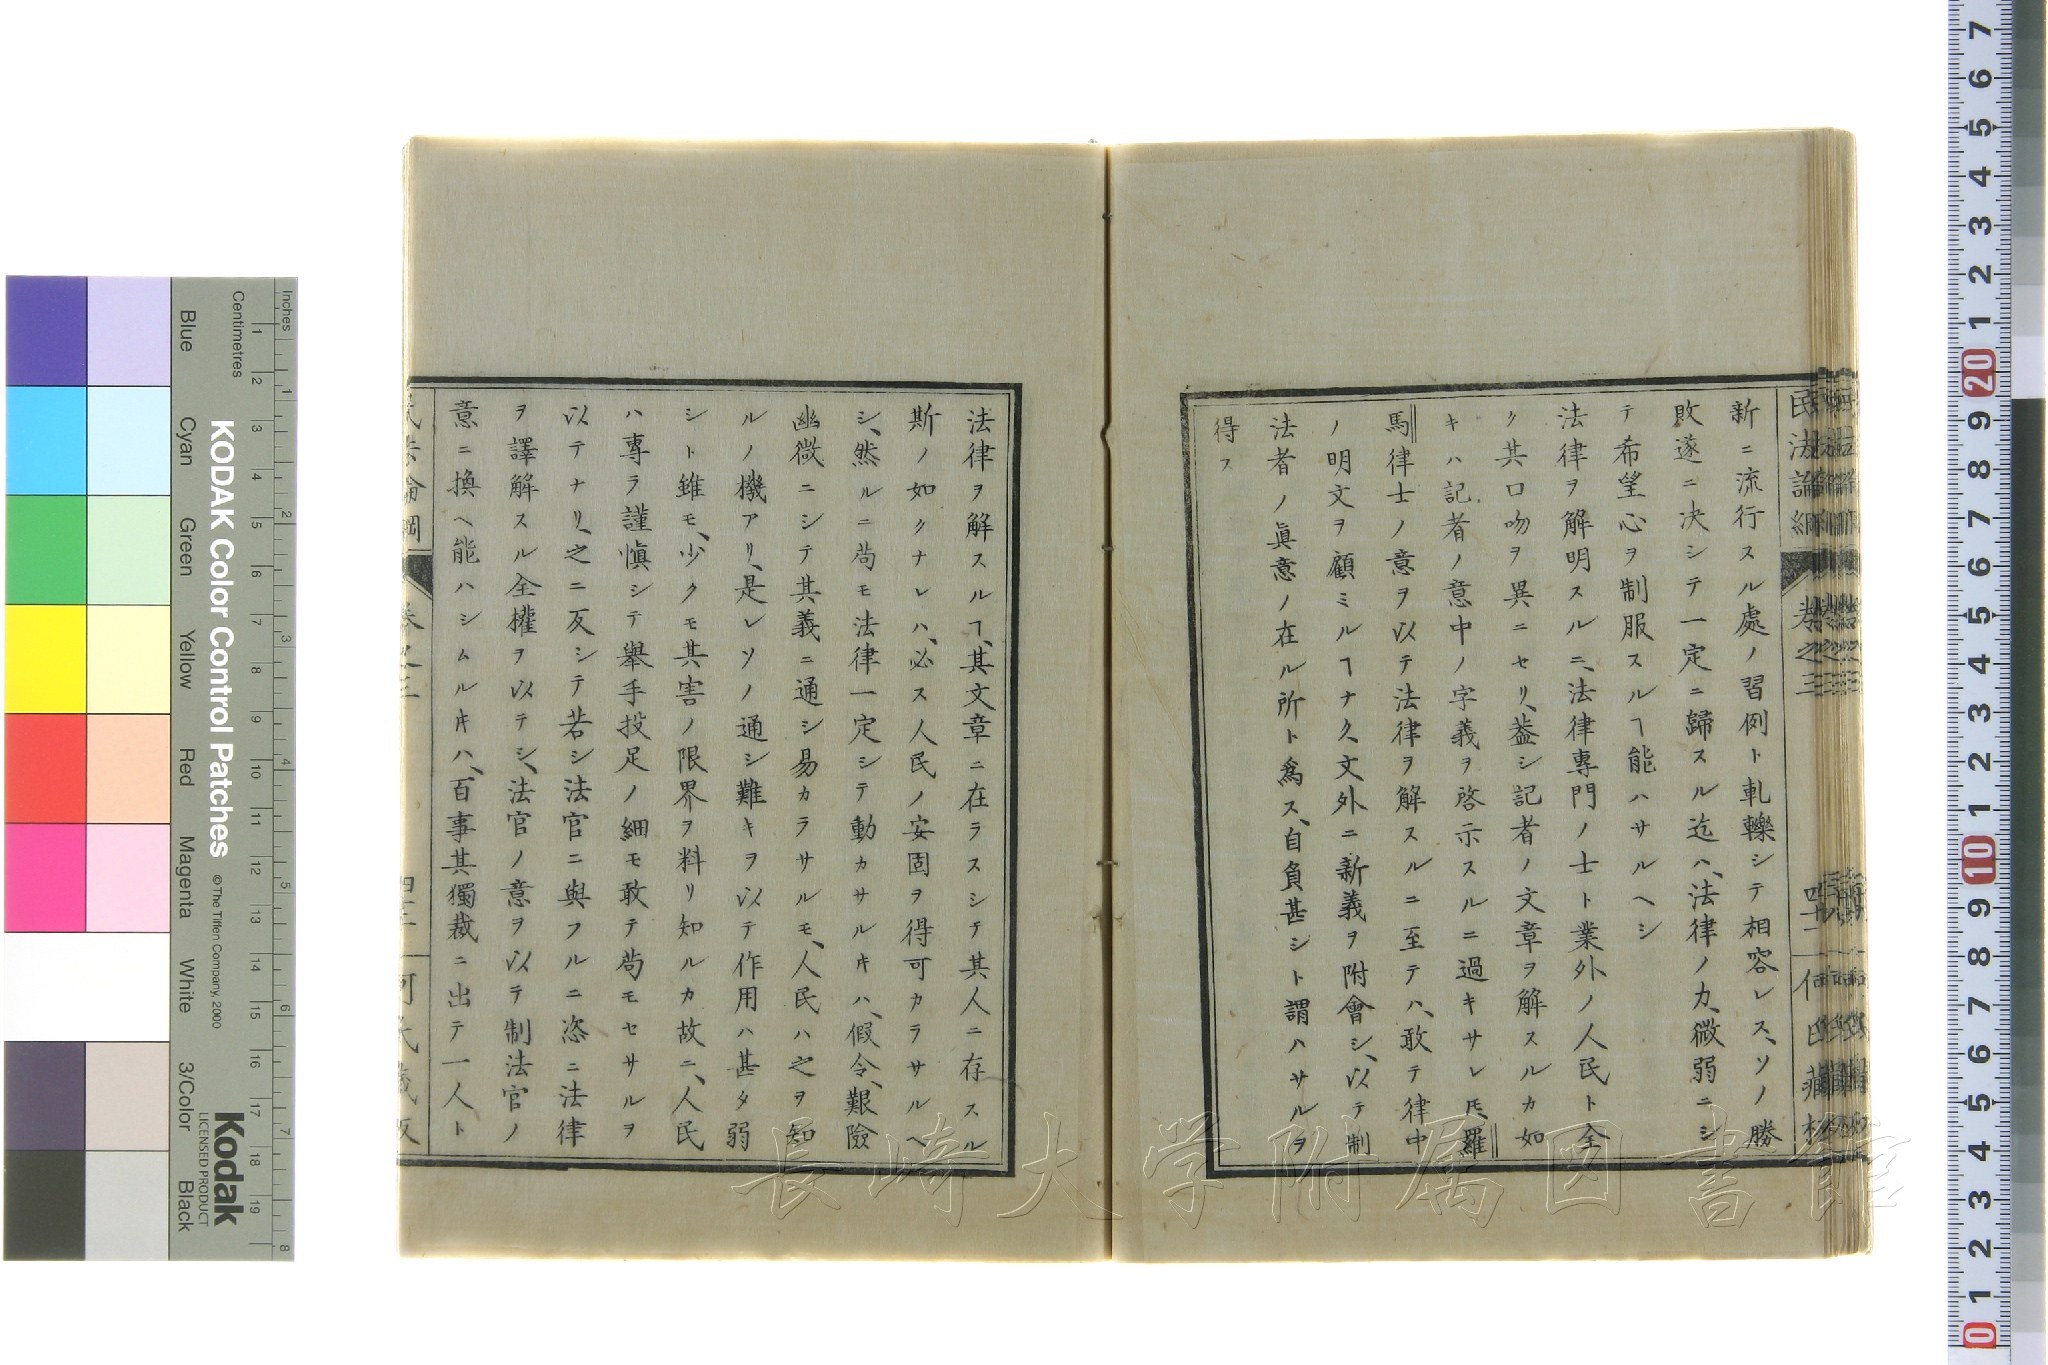 新ニ流行スル處ノ習例ト軋轢シテ相容レス、ソノ勝
敗遂ニ决シテ一定ニ歸スル迄ハ、法律ノ力、微弱ニシ
テ希望心ヲ制服スルヿ能ハサルヘシ
法律ヲ解明スルニ、法律專門ノ士ト業外ノ人民ト全
ク其口吻ヲ異ニセリ、葢シ記者ノ文章ヲ解スルカ如
キハ記者ノ意中ノ字義ヲ啓示スルニ過キサレ𪜈羅
馬律士ノ意ヲ以テ法律ヲ解スルニ至テハ、敢テ律中
ノ明文ヲ顧ミルヿナク、文外ニ新義ヲ附會シ、以テ制
法者ノ眞意ノ在ル所ト爲ス、自負甚シト謂ハサルヲ
得ス
民法論綱
卷之三
四十二
何氏藏板
法律ヲ解スルヿ、其文章ニ在ラスシテ其人ニ存スル
斯ノ如クナレハ、必ス人民ノ安固ヲ得可カラサルヘ
シ、然ルニ苟モ法律一定シテ動カサルキハ、假令、艱險
幽微ニシテ其義ニ通シ易カラサルモ、人民ハ之ヲ知
ルノ機アリ、是レソノ通シ難キヲ以テ作用ハ甚タ弱
シト雖モ、少クモ其害ノ限界ヲ料リ知ルカ故ニ、人民
ハ專ラ謹愼シテ舉手投足ノ細モ敢テ苟モセサルヲ
以テナリ、之ニ反シテ若シ法官ニ與フルニ恣ニ法律
ヲ譯解スル全權ヲ以テシ、法官ノ意ヲ以テ制法官ノ
意ニ換ヘ能ハシムルキハ、百事其獨裁ニ出テ一人ト
民法論綱
卷之三
四十三
何氏藏板
長崎大学附属図書館
KODAK Color Control Patches
© The Tiffen Company, 2000
Kodak
LICENSED PRODUCT
Inches
Centimetres
Blue
Cyan
Green
Yellow
Red
Magenta
White
3/Color
Black